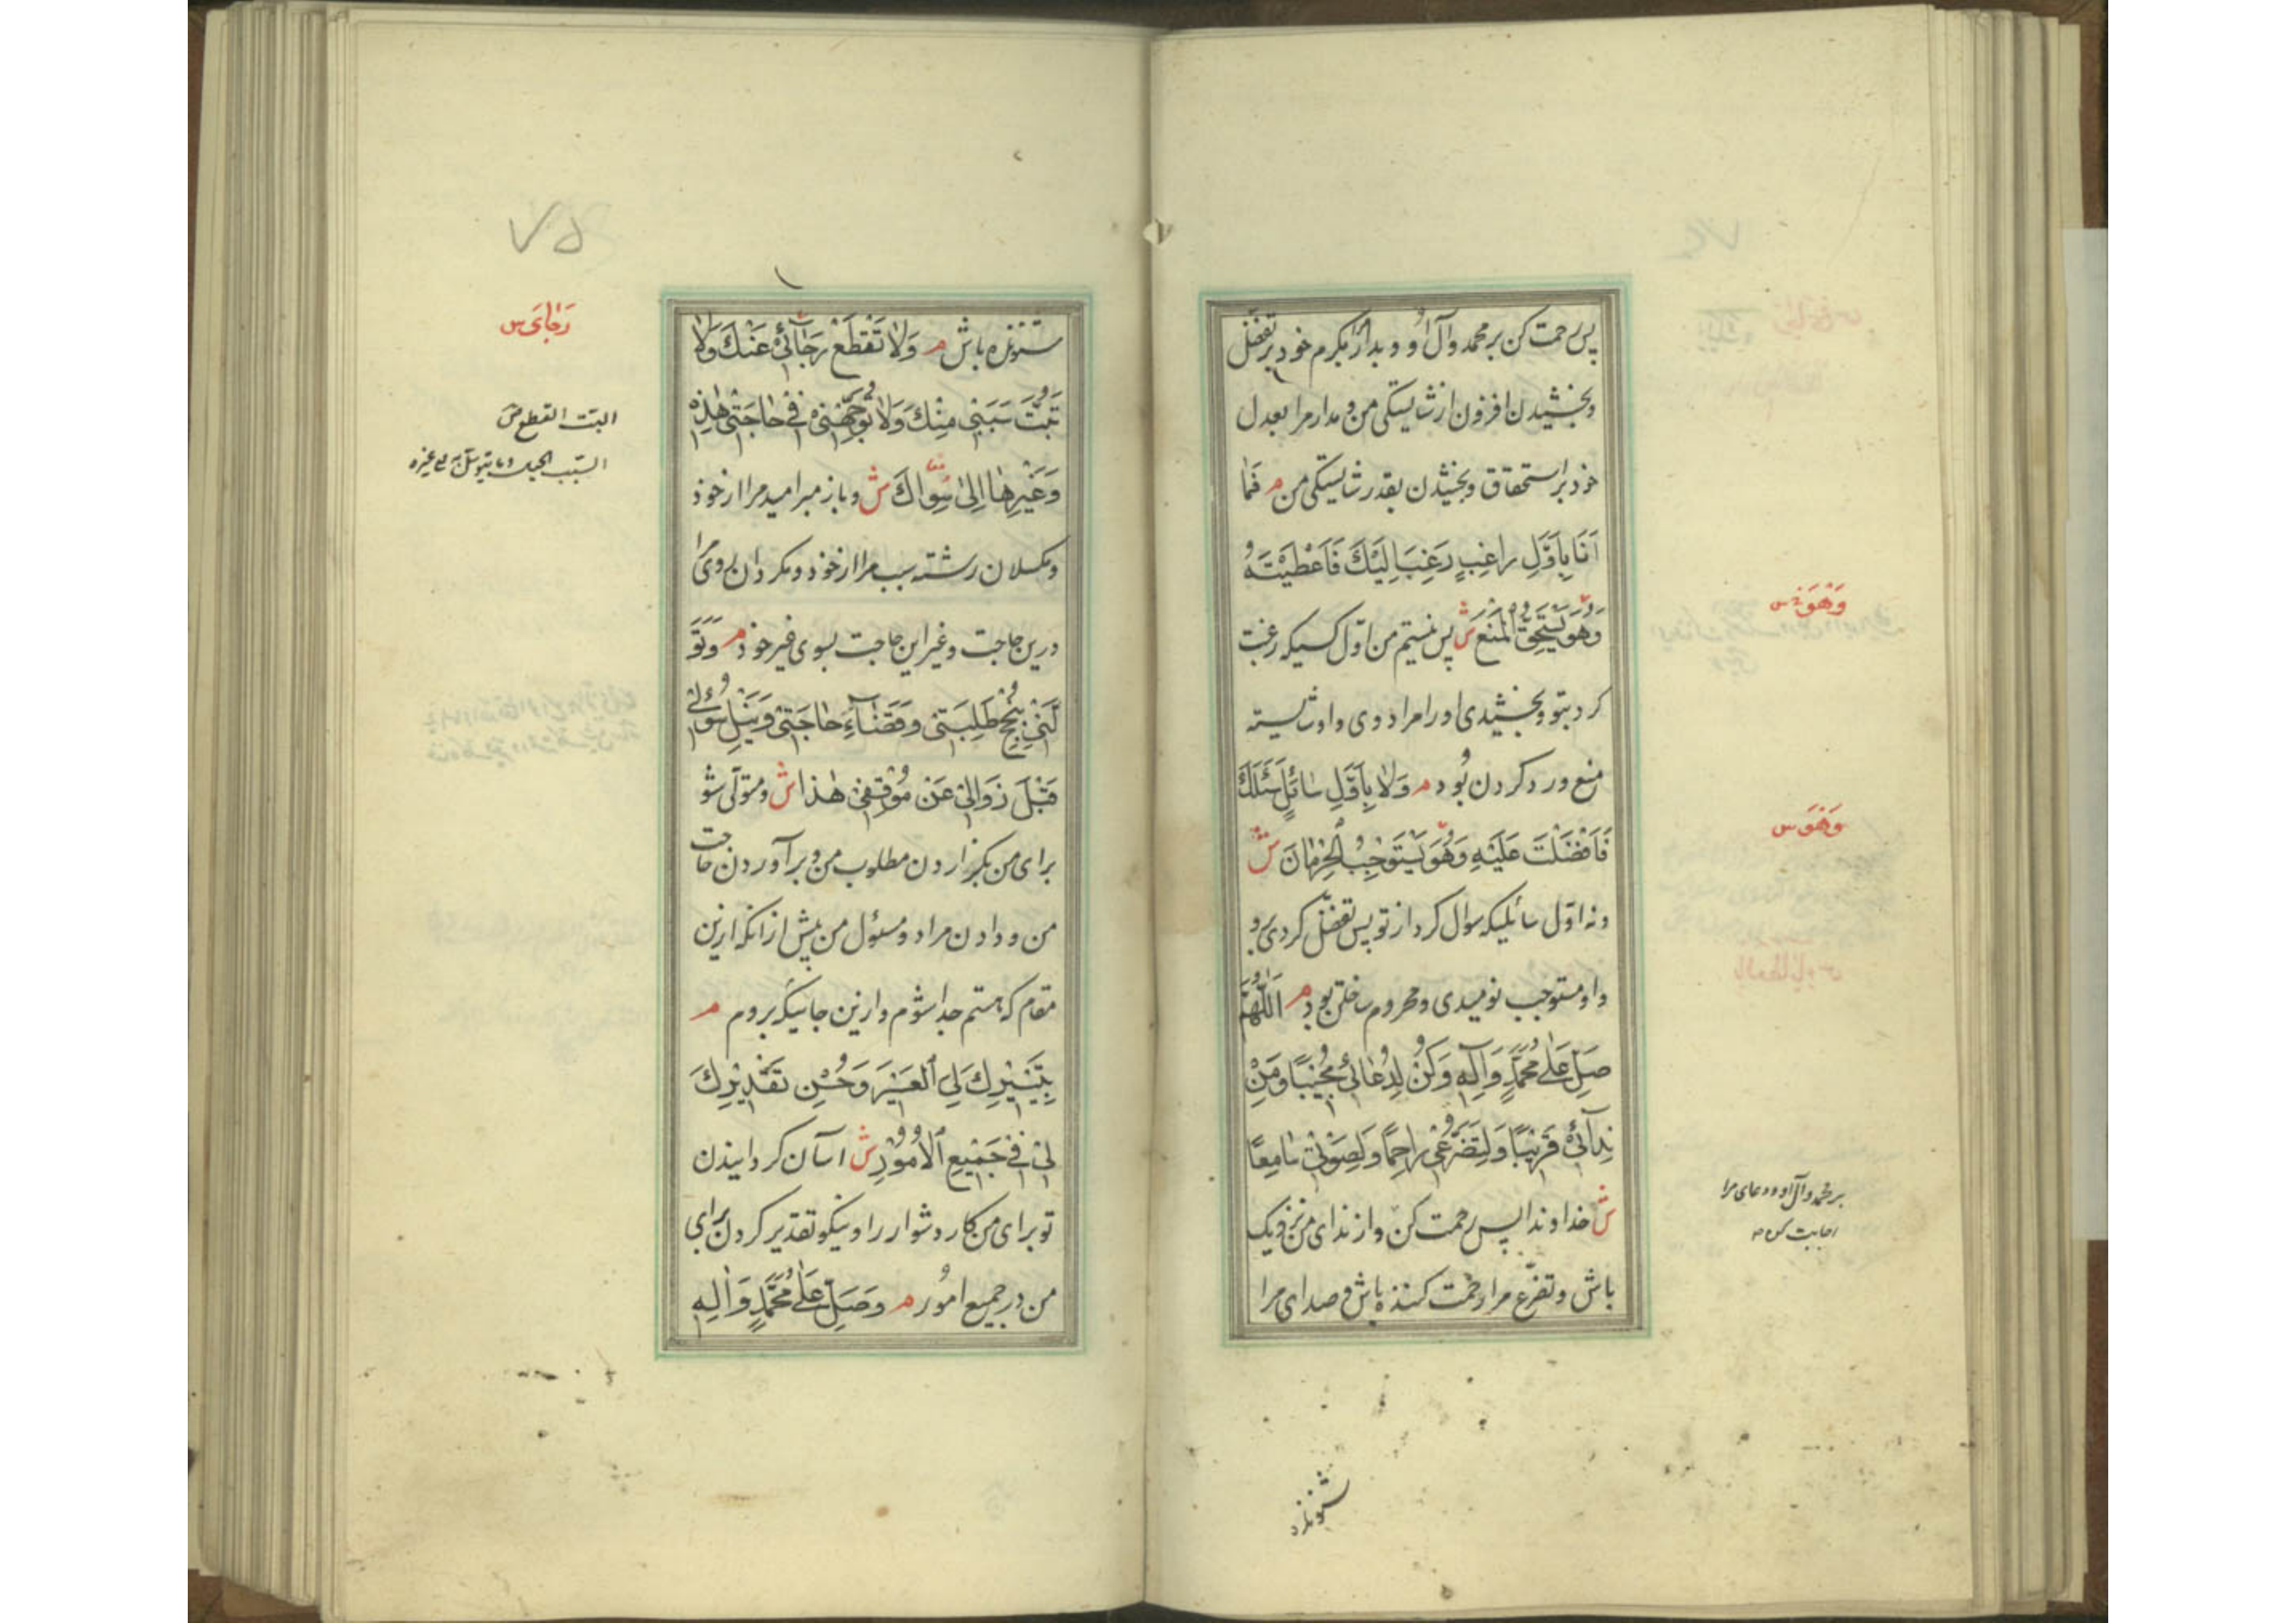 پس رحمت کن بر محمد وآل او و بدار مرا بکرم خود بر تفضّل
وبخشیدن افزون از شایستکی من و مدار مرا بعدل
خود بر استحقاق وبخشیدن بقدر شایستکی من م فَمٰا
اَنَا بِاَوَّلِ راغِبٍ رَغِبَ اِلَیْكَ فَاَعْطَیْتَهُ
وَهُوَ یَسْتَحِقُّ الْمَنْعَ ش پس نیستم من اوّل کسیکه رغبت
کرد بتو وبخشیدی او را مراد وی واو شایسته
منع ورد کردن بُود م وَلاٰ بِاَوَّلِ سٰائِلٍ سَئَلَكَ
فَاَفْضَلْتَ عَلَیْهِ وَهُوَ یَسْتَوْجِبُ الْحِرْمٰانَ ش
ونه اوّل سائلیکه سوال کرد از تو پس تفضّل کردی برو
واو مستوجب نومیدی ومحروم ساختن بود م اَللّٰهُمَّ
صَلِّ عَلٰی مُحَمَّدٍ وَاٰلِهِ وَکُنْ لِدُعٰائی مُجیْبًا وَمِنْ
نِدٰآئی قَریْبًا وَلِتَضَرُّعی رٰاحِمًا وَلِصَوْتی سٰامِعًا
ش خداوندا پس رحمت کن واز ندای من نزدیک
باش وتضرّع مرا رحمت کننده باش وصدای مرا
وَهُوَ س
وَهُوَ س
بر محمد وآل او ودعای مرا
اجابت کن
شنونده
۷۵
شنونده باش م وَلاٰ تَقْطَعْ رَجٰآئی عَنْكَ وَلاٰ
تَبُتَّ سَبَبی مِنْكَ وَلاٰ تُوَجِّهْنی فی حٰاجَتی هٰذِهِ
وَغَیْرِهٰا اِلیٰ سِوٰاكَ ش وباز مبر امید مرا از خود
ومکسلان رشته سبب مرا از خود ومکردان روی مرا
درین حاجت وغیر این حاجت بسوی غیر خود م وَتَوَ
لَّنی بِنُجْحِ طَلِبَتی وَقَضٰآءِ حٰاجَتی وَنَیْلِ سُؤْلی
قَبْلَ زَوٰالی عَنْ مَوْقِفی هٰذا ش ومتولّی شو
برای من بکزاردن مطلوب من وبرآوردن حاجت
من ودادن مراد ومسئول من پیش از آنکه ازین
مقام که هستم جدا شوم وازین جائیکه بروم م
بِتَیْسیْرِكَ لِیَ الْعَسیْرَ وَحُسْنِ تَقْدیْرِكَ
لی فی جَمیْعِ الْاُمُوْرِ ش آسان کردانیدن
تو برای من کار دشوار را ونیکو تقدیر کردن برای
من در جمیع امُور م وَصَلِّ عَلٰی مُحَمَّدٍ وَاٰلِهِ
رَجٰایَ س
البت القطع ص
السّبب الحبل وما یتوسّل به الی غیره